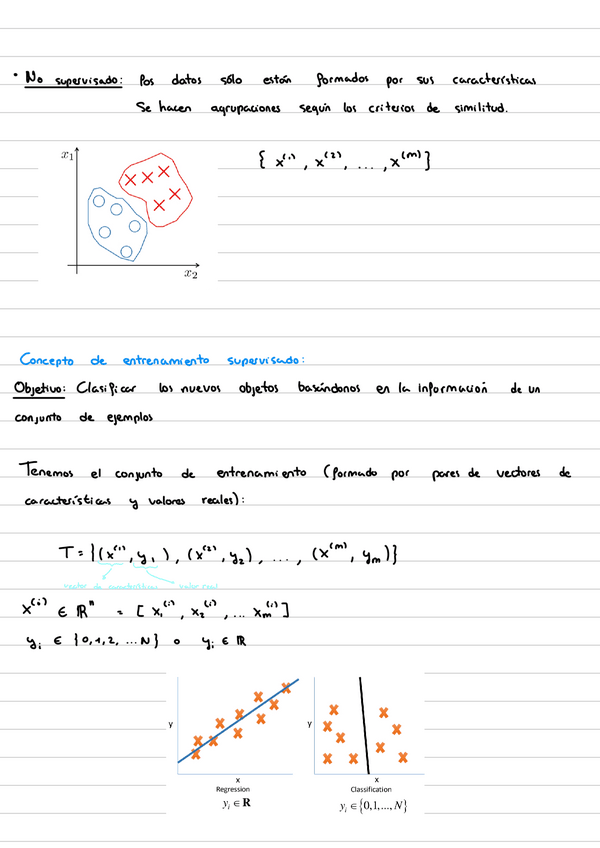 • No supervisado: Pos datos sólo están formados por sus características
Se hacen agrupaciones según los criterios de similitud.
x₁
{ x⁽¹⁾, x⁽²⁾, ..., x⁽ᵐ⁾}
x₂
Concepto de entrenamiento supervisado:
Objetivo: Clasificar los nuevos objetos basándonos en la información de un
conjunto de ejemplos
Tenemos el conjunto de entrenamiento (formado por pares de vectores de
características y valores reales):
T = {(x⁽¹⁾, y₁), (x⁽²⁾, y₂), ..., (x⁽ᵐ⁾, yₘ)}
vector de características valor real
x⁽ⁱ⁾ ∈ ℝⁿ = [x₁⁽ⁱ⁾, x₂⁽ⁱ⁾, ... xₘ⁽ⁱ⁾]
yᵢ ∈ {0,1,2, ... N} o yᵢ ∈ ℝ
y y
x x
Regression Classification
yᵢ ∈ R yᵢ ∈ {0,1,...,N}